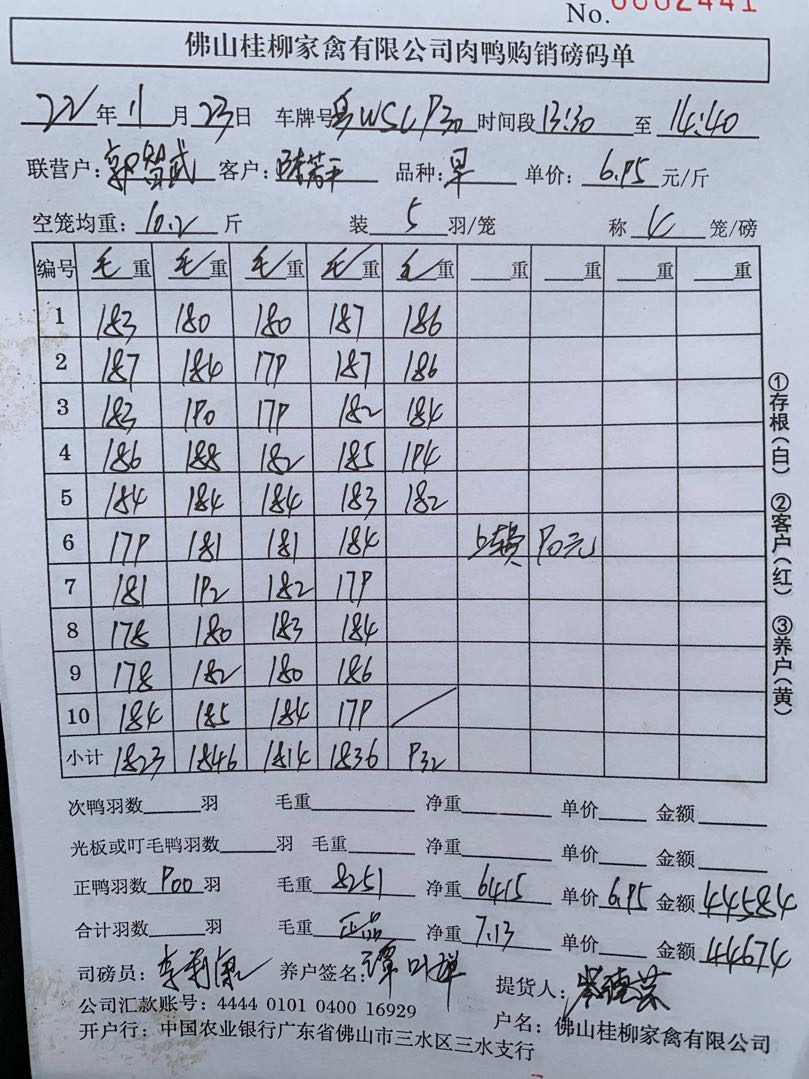 No. 0002441
佛山桂柳家禽有限公司肉鸭购销磅码单
22年11月23日 车牌号粤WSL930 时间段13:30 至 14:40
联营户:郭智武 客户:陈芳平 品种: 单价: 6.95 元/斤
空笼均重:10.2 斤 装 5 羽/笼 称 4 笼/磅
编号 毛重 毛重 毛重 毛重 毛重 重 重 重 重
1 183 180 180 187 186
2 187 184 179 187 186
3 183 190 179 182 184
4 186 188 182 185 194
5 184 184 184 183 182
6 179 181 181 184 90元
7 181 192 182 179
8 178 180 183 184
9 178 182 180 186
10 184 185 184 179
小计 1823 1846 1814 1836 932
次鸭羽数 羽 毛重 净重 单价 金额
光板或叮毛鸭羽数 羽 毛重 净重 单价 金额
正鸭羽数 900 羽 毛重 8251 净重 6415 单价 6.95 金额 44584
合计羽数 羽 毛重 正品 净重 7.13 单价 金额 44674
司磅员:李利康 养户签名:谭叶婵 提货人:
公司汇款账号:4444 0101 0400 16929
户名:佛山桂柳家禽有限公司
开户行:中国农业银行广东省佛山市三水区三水支行
①存根(白) ②客户(红) ③养户(黄)